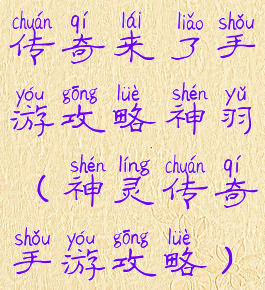 chuán qí lái liǎo shǒu
传奇来了手
yóu gōng lüè shén yǔ
游攻略神羽
shén líng chuán qí
（神灵传奇
shǒu yóu gōng lüè
手游攻略）